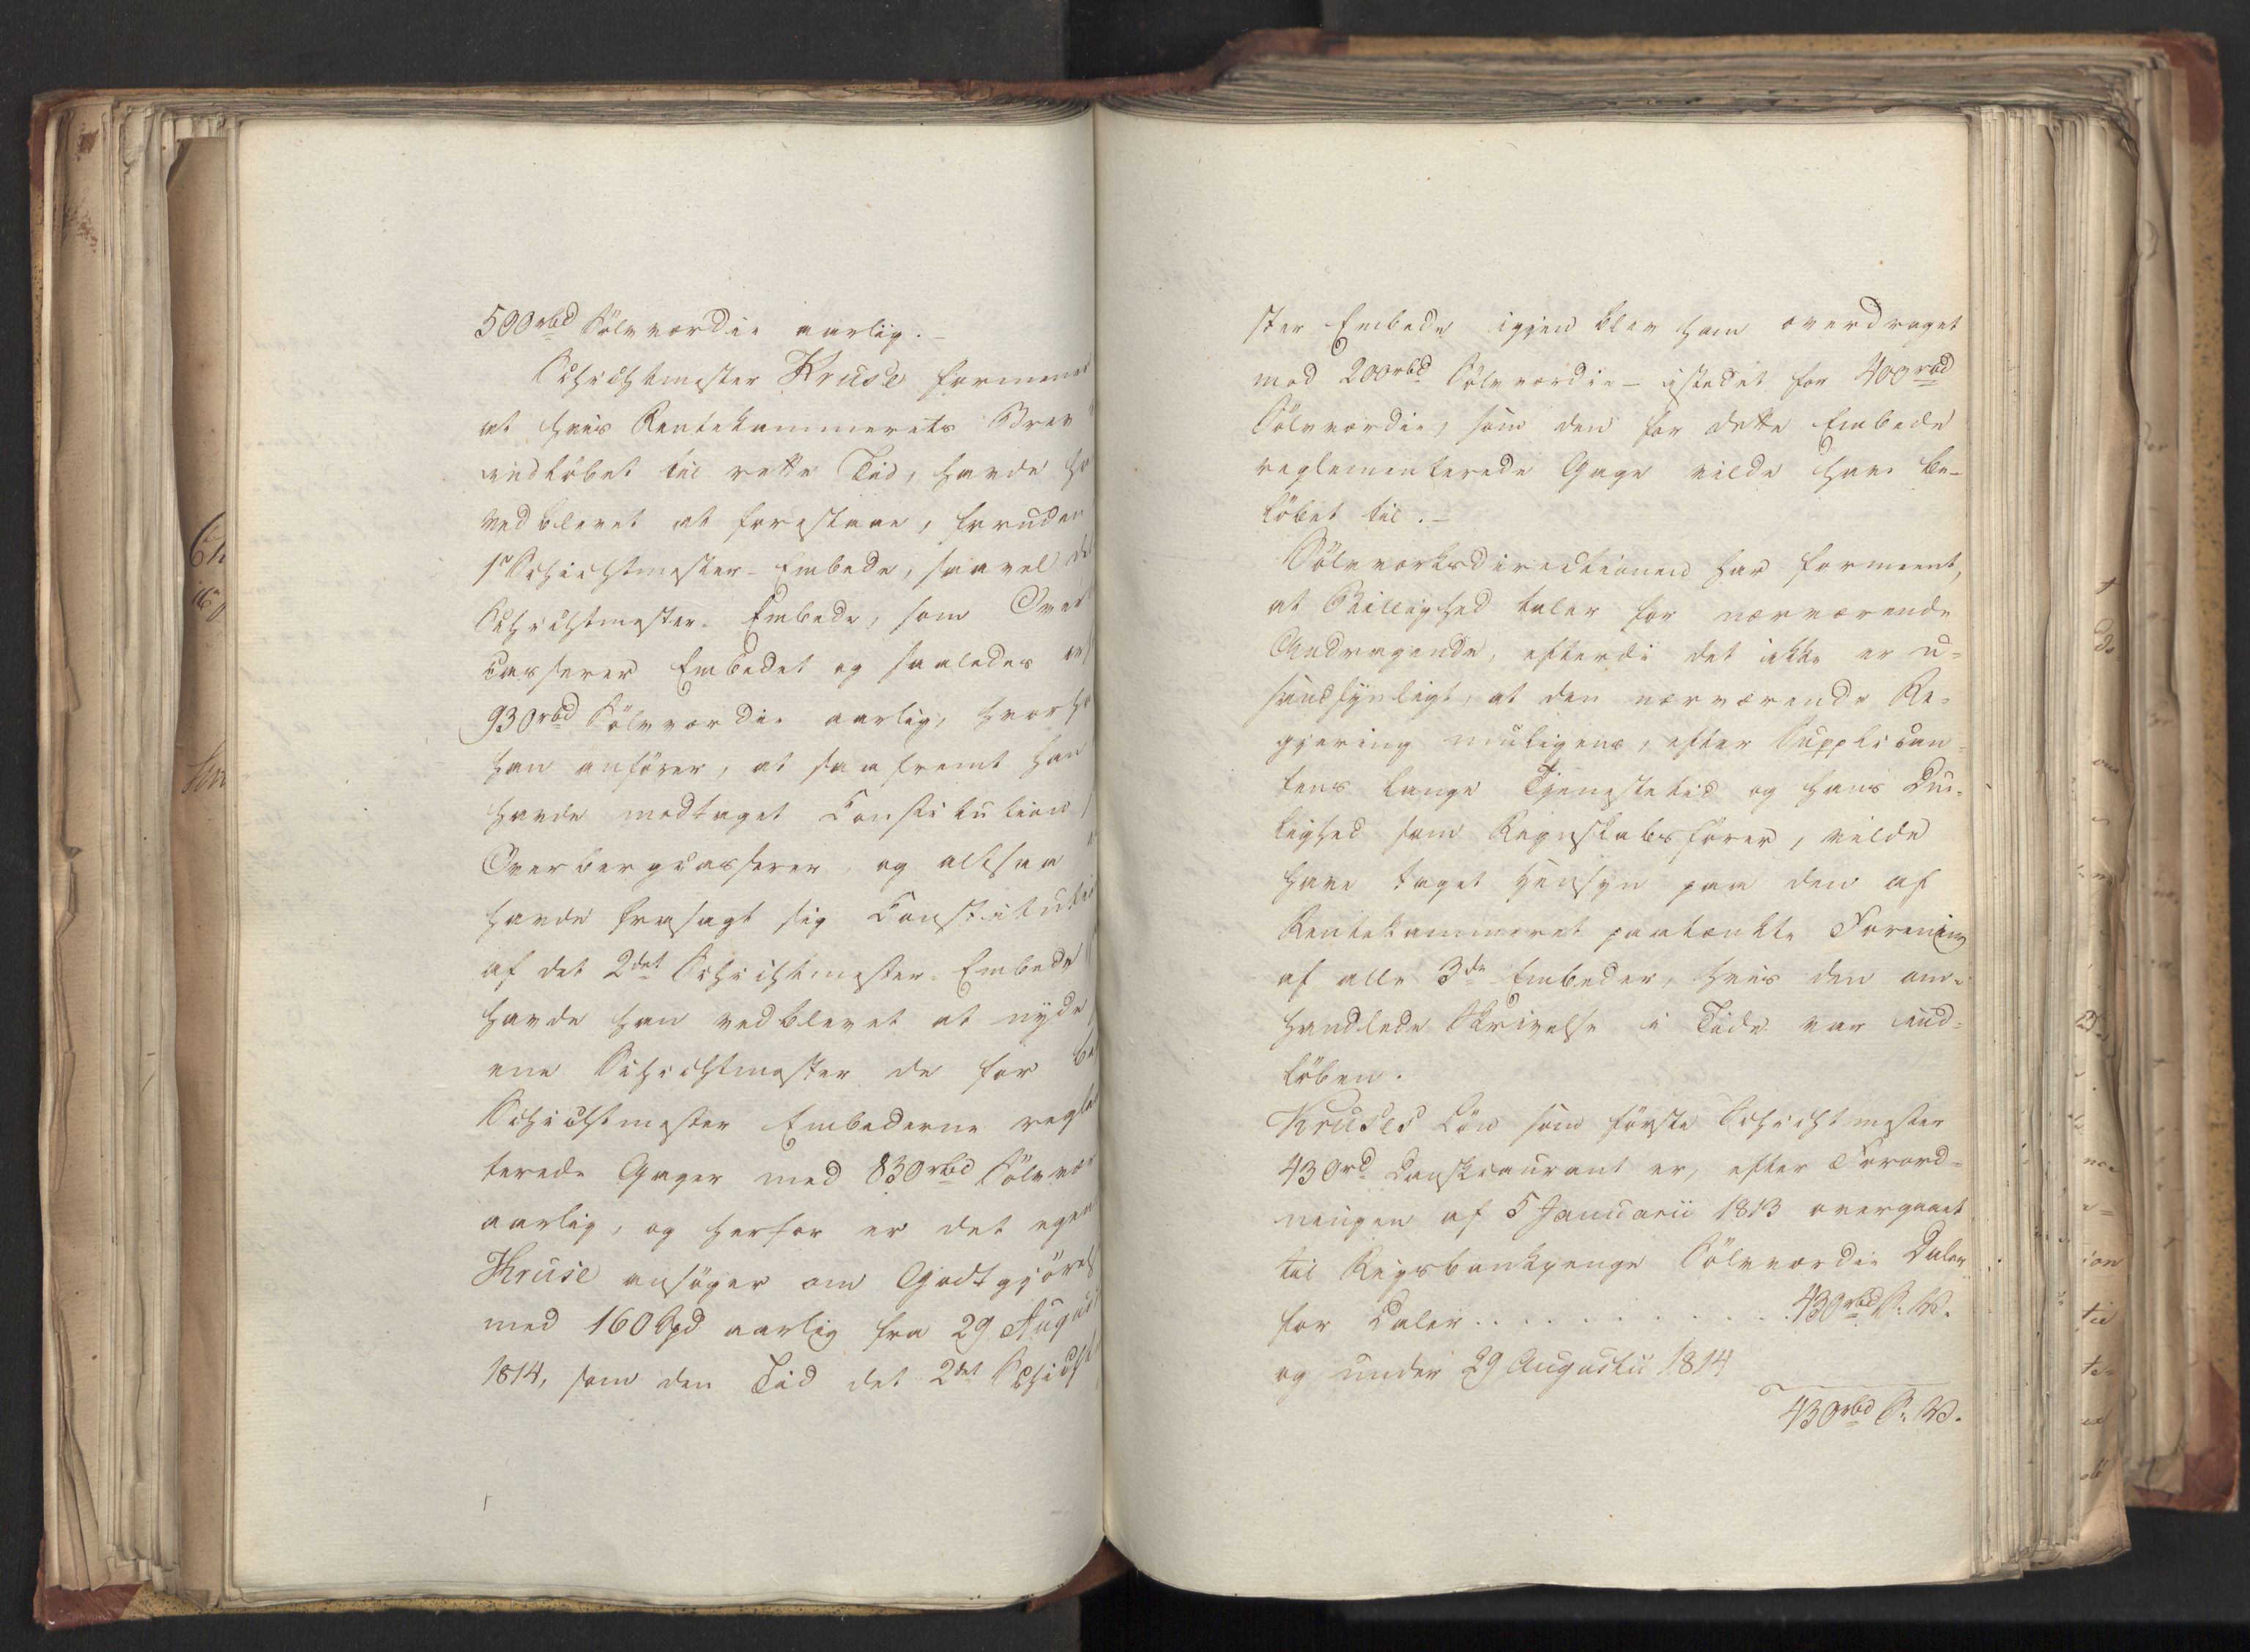 500rbd Sölvværdie aarlig.-
Schichtmester Kruse formener
at hvis Rentekammerets Brev
indlöbet til rette Tid, havde
vedblevet at forestaae, foruden
1ste Schichtmester-Embede, saavel
Schichtmester-Embede, som Over
casserer Embedet og saaledes
930rbd Sölvværdie aarlig,
han anförer, at saafremt han
havde modtaget Constitution
Overbergcasserer, og altsaa
havde frasagt sig
af det 2det Schichtmester-Embede
havde han vedblevet at nyde
ene Schichtmester de for
Schichtmester Embederne regle
terede Gager med 830rbd Sölvvær
aarlig, og herfor er det egen
Kruse ansöger om Godtgjörels
med 160 Spd aarlig fra 29 August
1814, som den Tid det 2det Schicht
ster Embede igjen blev ham overdraget
med 200rbd Sölvværdie - istedet for 400rbd
Sölvværdie, som den for dette Embede
reglementerede Gage vilde have be-
löbet til.-
Sölvværksdirectionen har formeent,
at Billighed taler for nærværende
Andragende, efterdi det ikke er u-
sandsynligt, at den nærværende Re-
gjering muligens, efter Supplican-
tens lange Tjenestetid og hans Due-
lighed som Regnskabsförer, vilde
have taget Hensyn paa den af
Rentekammeret paatænkte Forening
af alle 3de Embeder, hvis den om-
handlede Skrivelse i Tide var ind-
löben.
Kruses Lön som förste Schichtmester
430rd Danskcourant er, efter Forord-
ningen af 5 Januarii 1813 overgaaet
til Rigsbankpenge Sölvværdie Daler
for Daler . . . . . . . . . . . . 430rbd S. V.
og under 29 Augustii 1814
430rbd S. V.